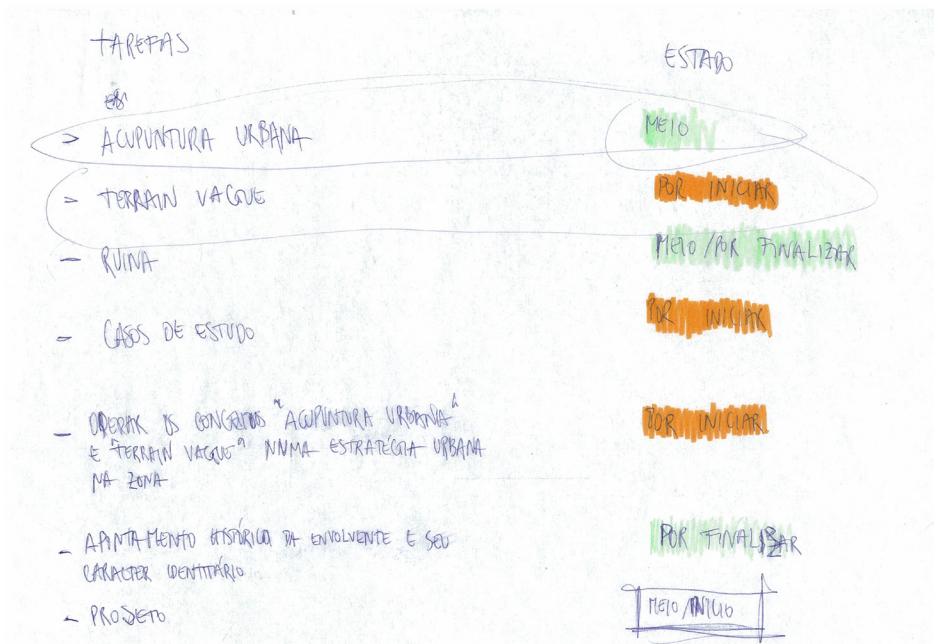 TAREFAS ESTADO
> ACUPUNTURA URBANA MEIO
> TERRAIN VAGUE POR INICIAR
- RUINA MEIO/POR FINALIZAR
- CASOS DE ESTUDO POR INICIAR
- OPERAR OS CONCEITOS "ACUPUNTURA URBANA" POR INICIAR
E "TERRAIN VAGUE" NNMA ESTRATÉGIA URBANA
NA ZONA
- APINTAMENTO HISTÓRICO DA ENVOLVENTE E SEU POR FINALIZAR
CARACTER IDENTITÁRIO
- PROJETO MEIO/INICIO